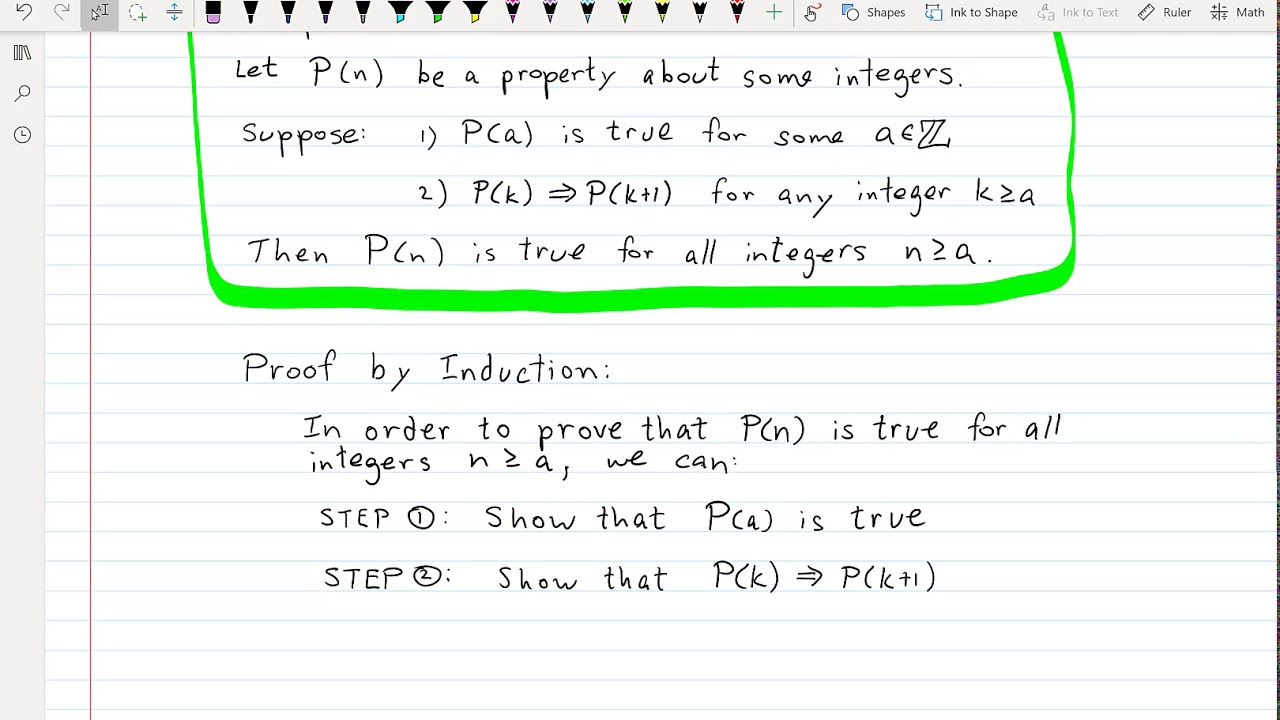 Shapes
Ink to Shape
Ink to Text
Ruler
Math
Let P(n) be a property about some integers.
Suppose: 1) P(a) is true for some a∈ℤ
2) P(k) ⇒ P(k+1) for any integer k≥a
Then P(n) is true for all integers n≥a.
Proof by Induction:
In order to prove that P(n) is true for all
integers n≥a, we can:
STEP ①: Show that P(a) is true
STEP ②: Show that P(k) ⇒ P(k+1)